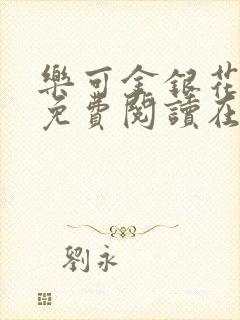 樂可金銀花
免費閱讀在
劉永